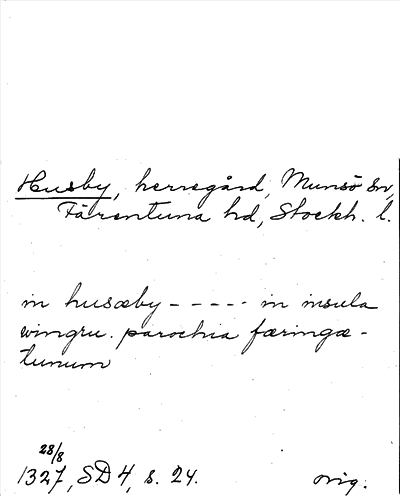 Husby, herregård, Munsö sn,
Färentuna hd, Stockh. l.
in husæby - - - - - in insula
wingru. parochia færingæ-
tunum
28/8
1327, SD 4, s. 24. orig.